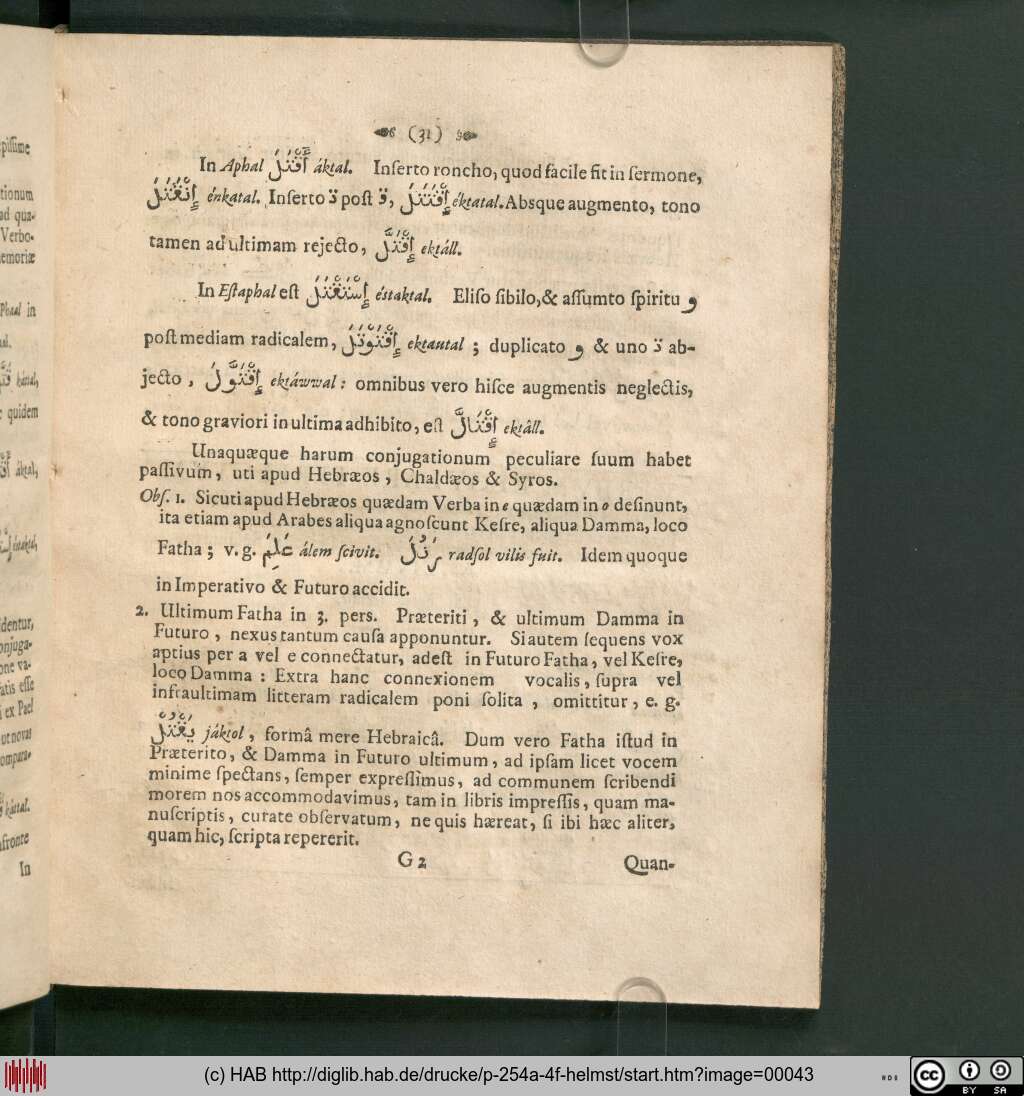 pissime
tionum
ad qua-
Verbo-
emoriæ
Phaal in
quidem
áktal,
éstaktal,
dentur,
onjuga-
one va-
atis esse
ex Pael
ut novas
ompara-
káttal.
afronte
In
(31)
In Aphal أَقْتَلَ áktal. Inserto roncho, quod facile fit in sermone,
إِنْقَتَلَ énkatal. Inserto ت post ق, إِقْتَتَلَ éktatal. Absque augmento, tono
tamen ad ultimam rejecto, إِقْتَلَّ ektáll.
In Estaphal est إِسْتَقْتَلَ éstaktal. Eliso sibilo, & assumto spiritu و
post mediam radicalem, إِقْتَوْتَلَ ektautal ; duplicato و & uno ت ab-
jecto, إِقْتَوَّلَ ektáwwal : omnibus vero hisce augmentis neglectis,
& tono graviori in ultima adhibito, est إِقْتَالَّ ektâll.
Unaquæque harum conjugationum peculiare suum habet
passivum, uti apud Hebræos, Chaldæos & Syros.
Obs. 1. Sicuti apud Hebræos quædam Verba in e quædam in o desinunt,
ita etiam apud Arabes aliqua agnoscunt Kesre, aliqua Damma, loco
Fatha ; v. g. عَلِمَ álem scivit. رَذُلَ radsol vilis fuit. Idem quoque
in Imperativo & Futuro accidit.
2. Ultimum Fatha in 3. pers. Præteriti, & ultimum Damma in
Futuro, nexus tantum causa apponuntur. Si autem sequens vox
aptius per a vel e connectatur, adest in Futuro Fatha, vel Kesre,
loco Damma : Extra hanc connexionem vocalis, supra vel
infra ultimam litteram radicalem poni solita, omittitur, e. g.
يَقْتُلْ jáktol, formâ mere Hebraicâ. Dum vero Fatha istud in
Præterito, & Damma in Futuro ultimum, ad ipsam licet vocem
minime spectans, semper expressimus, ad communem scribendi
morem nos accommodavimus, tam in libris impressis, quam ma-
nuscriptis, curate observatum, ne quis hæreat, si ibi hæc aliter,
quam hic, scripta repererit.
G 2 Quan-
(c) HAB http://diglib.hab.de/drucke/p-254a-4f-helmst/start.htm?image=00043
HAB
cc BY SA